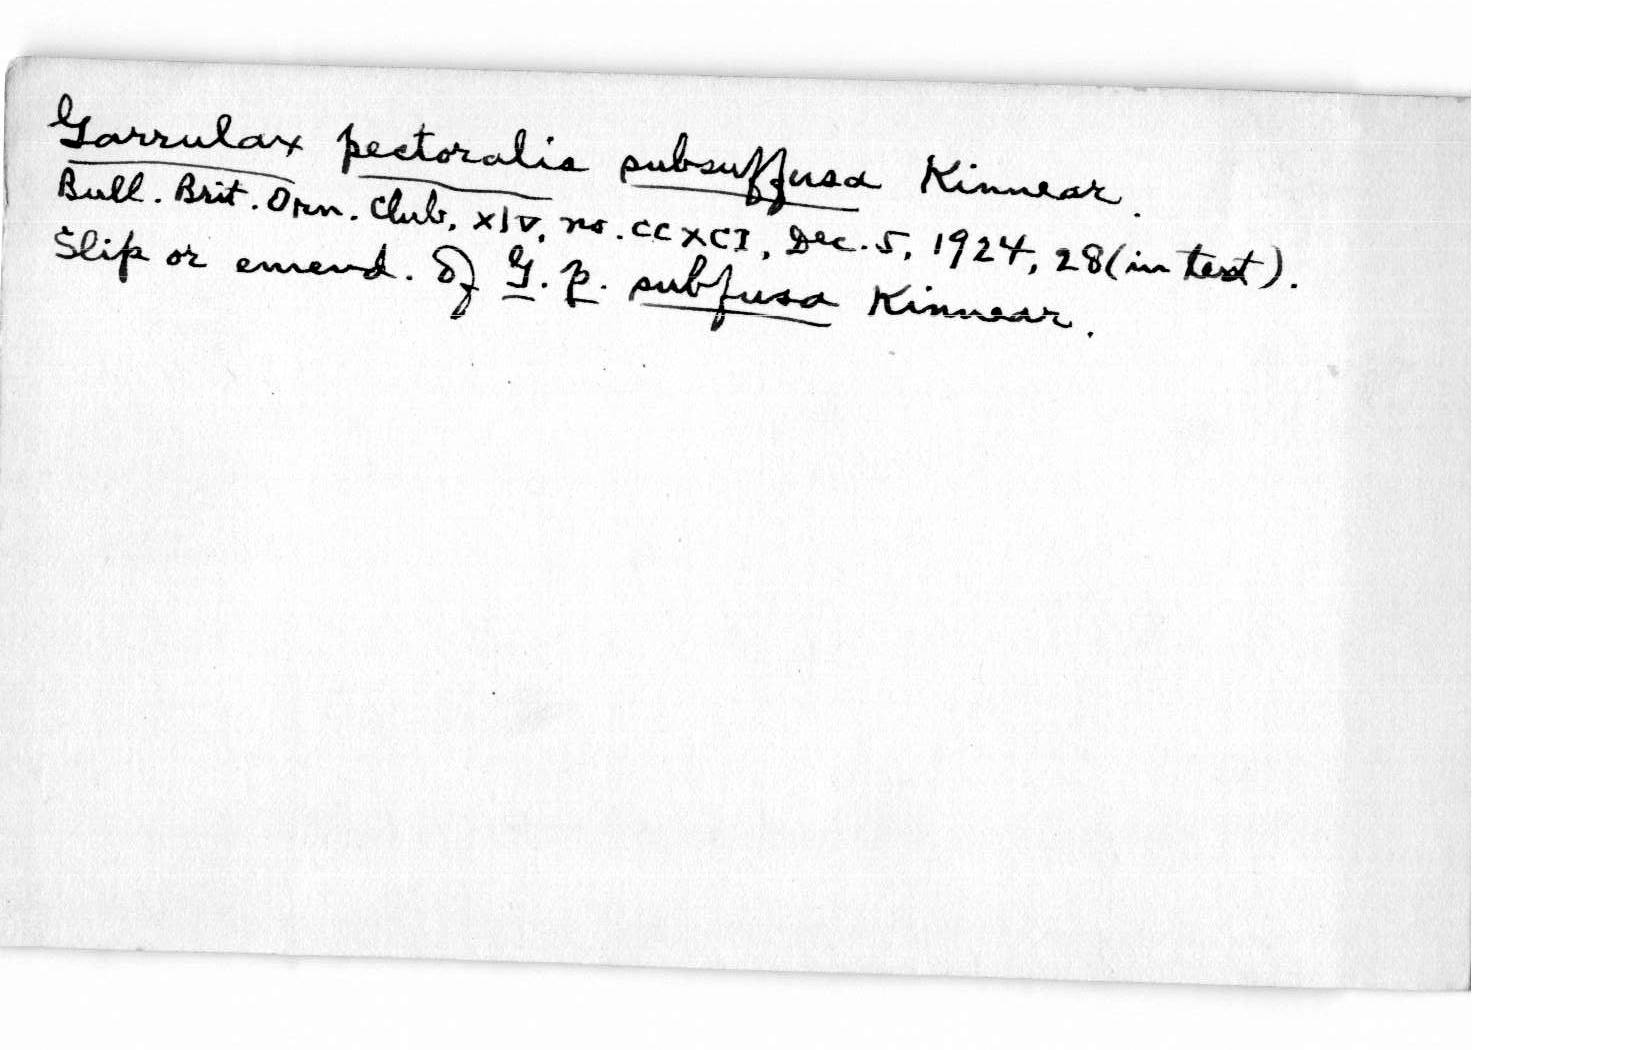 Garrulax pectoralis subsuffusa Kinnear.
Bull. Brit. Orn. Club, xlv, no. CCXCI, Dec. 5, 1924, 28 (in text).
Slip or emend. of G. p. subfusa Kinnear.